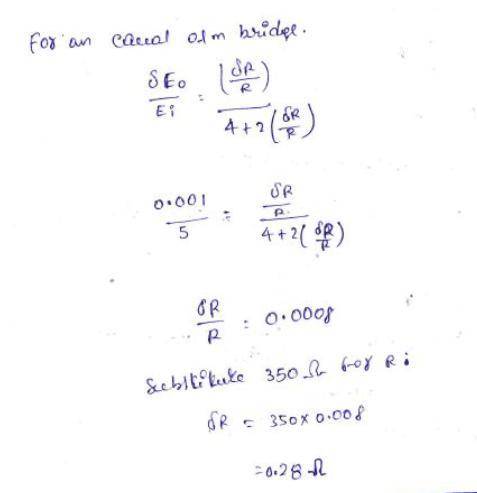 For an equal arm bridge.
δE₀/Ei = (δR/R) / (4+2(δR/R))
0.001/5 = (δR/R) / (4+2(δR/R))
δR/R = 0.0008
Substitute 350 Ω for R:
δR = 350 x 0.008
=0.28 Ω